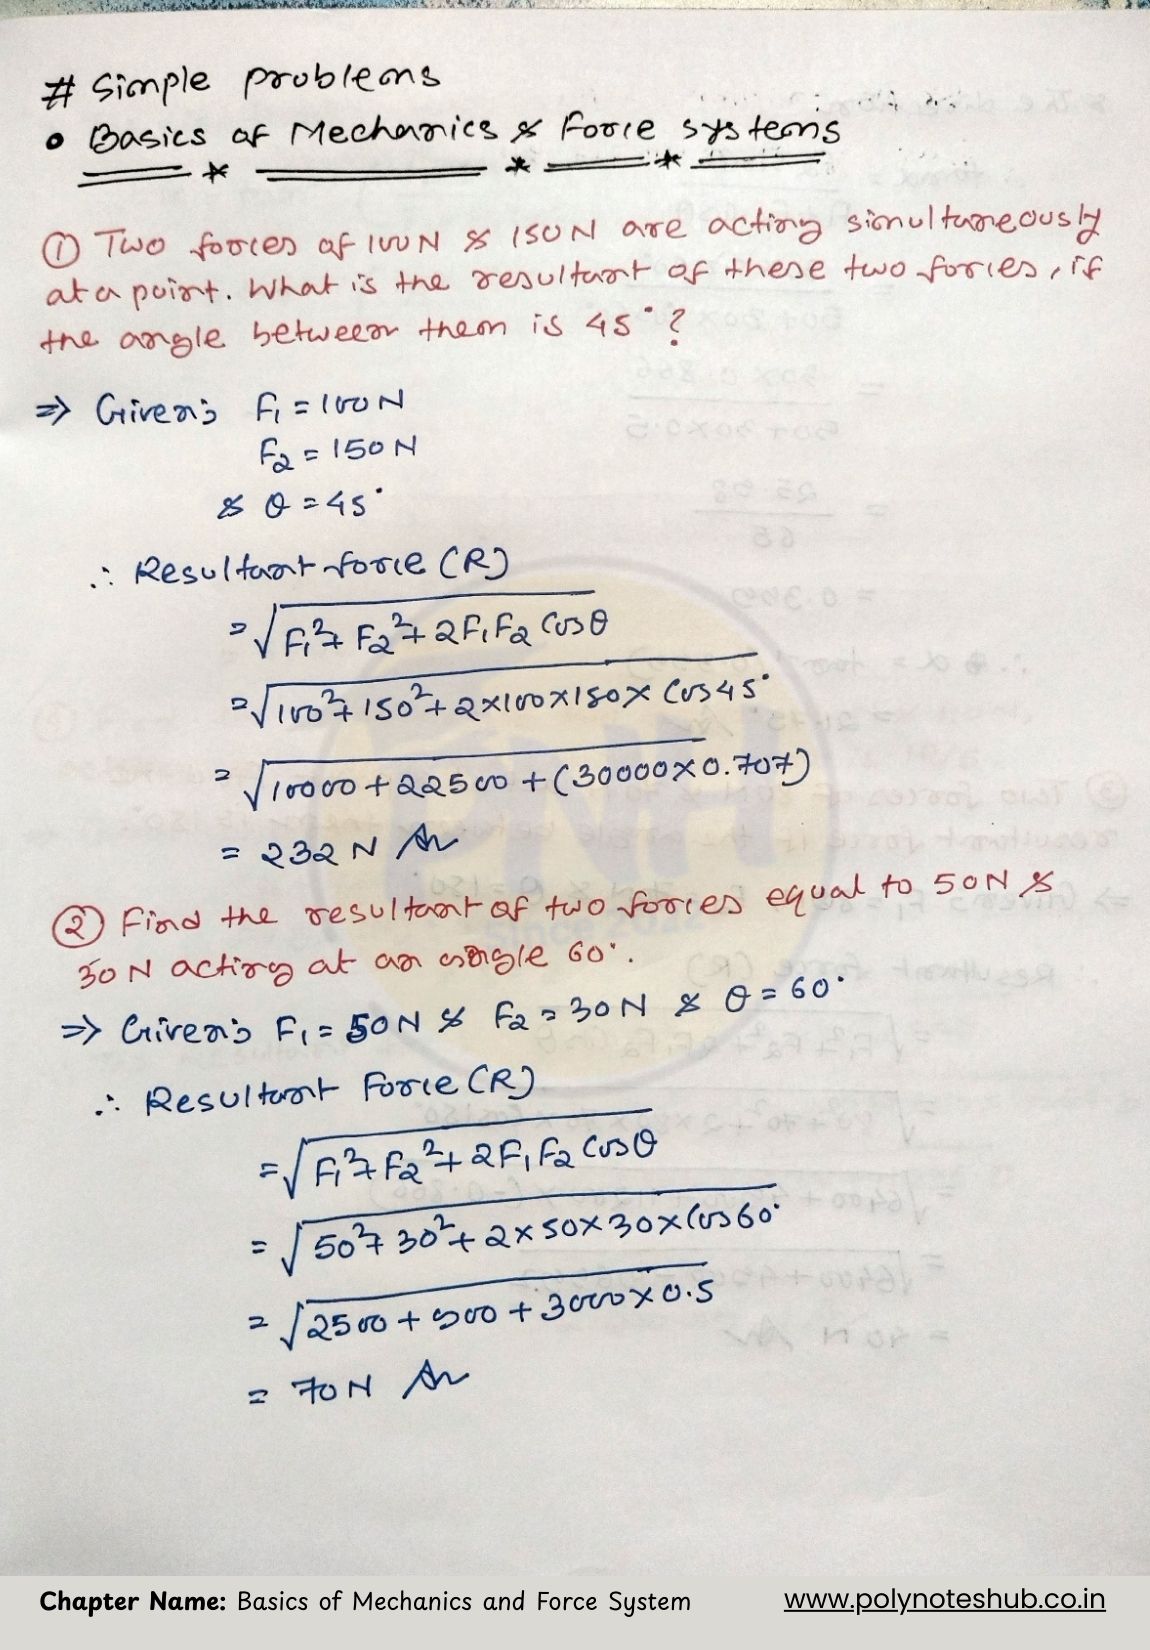 # Simple problems
• Basics of Mechanics & Force systems
① Two forces of 100N & 150N are acting simultaneously
at a point. What is the resultant of these two forces, if
the angle between them is 45°?
⇒ Given: F₁ = 100N
F₂ = 150N
& θ = 45°
∴ Resultant force (R)
= √(F₁² + F₂² + 2F₁F₂ Cosθ)
= √(100² + 150² + 2×100×150× Cos45°)
= √(10000 + 22500 + (30000×0.707))
= 232 N
② Find the resultant of two forces equal to 50N &
30N acting at an angle 60°.
⇒ Given: F₁ = 50N & F₂ = 30N & θ = 60°
∴ Resultant Force (R)
= √(F₁² + F₂² + 2F₁F₂ Cosθ)
= √(50² + 30² + 2×50×30×Cos60°)
= √(2500 + 900 + 3000×0.5)
= 70N
PNH
Since 2022
Chapter Name: Basics of Mechanics and Force System
www.polynoteshub.co.in